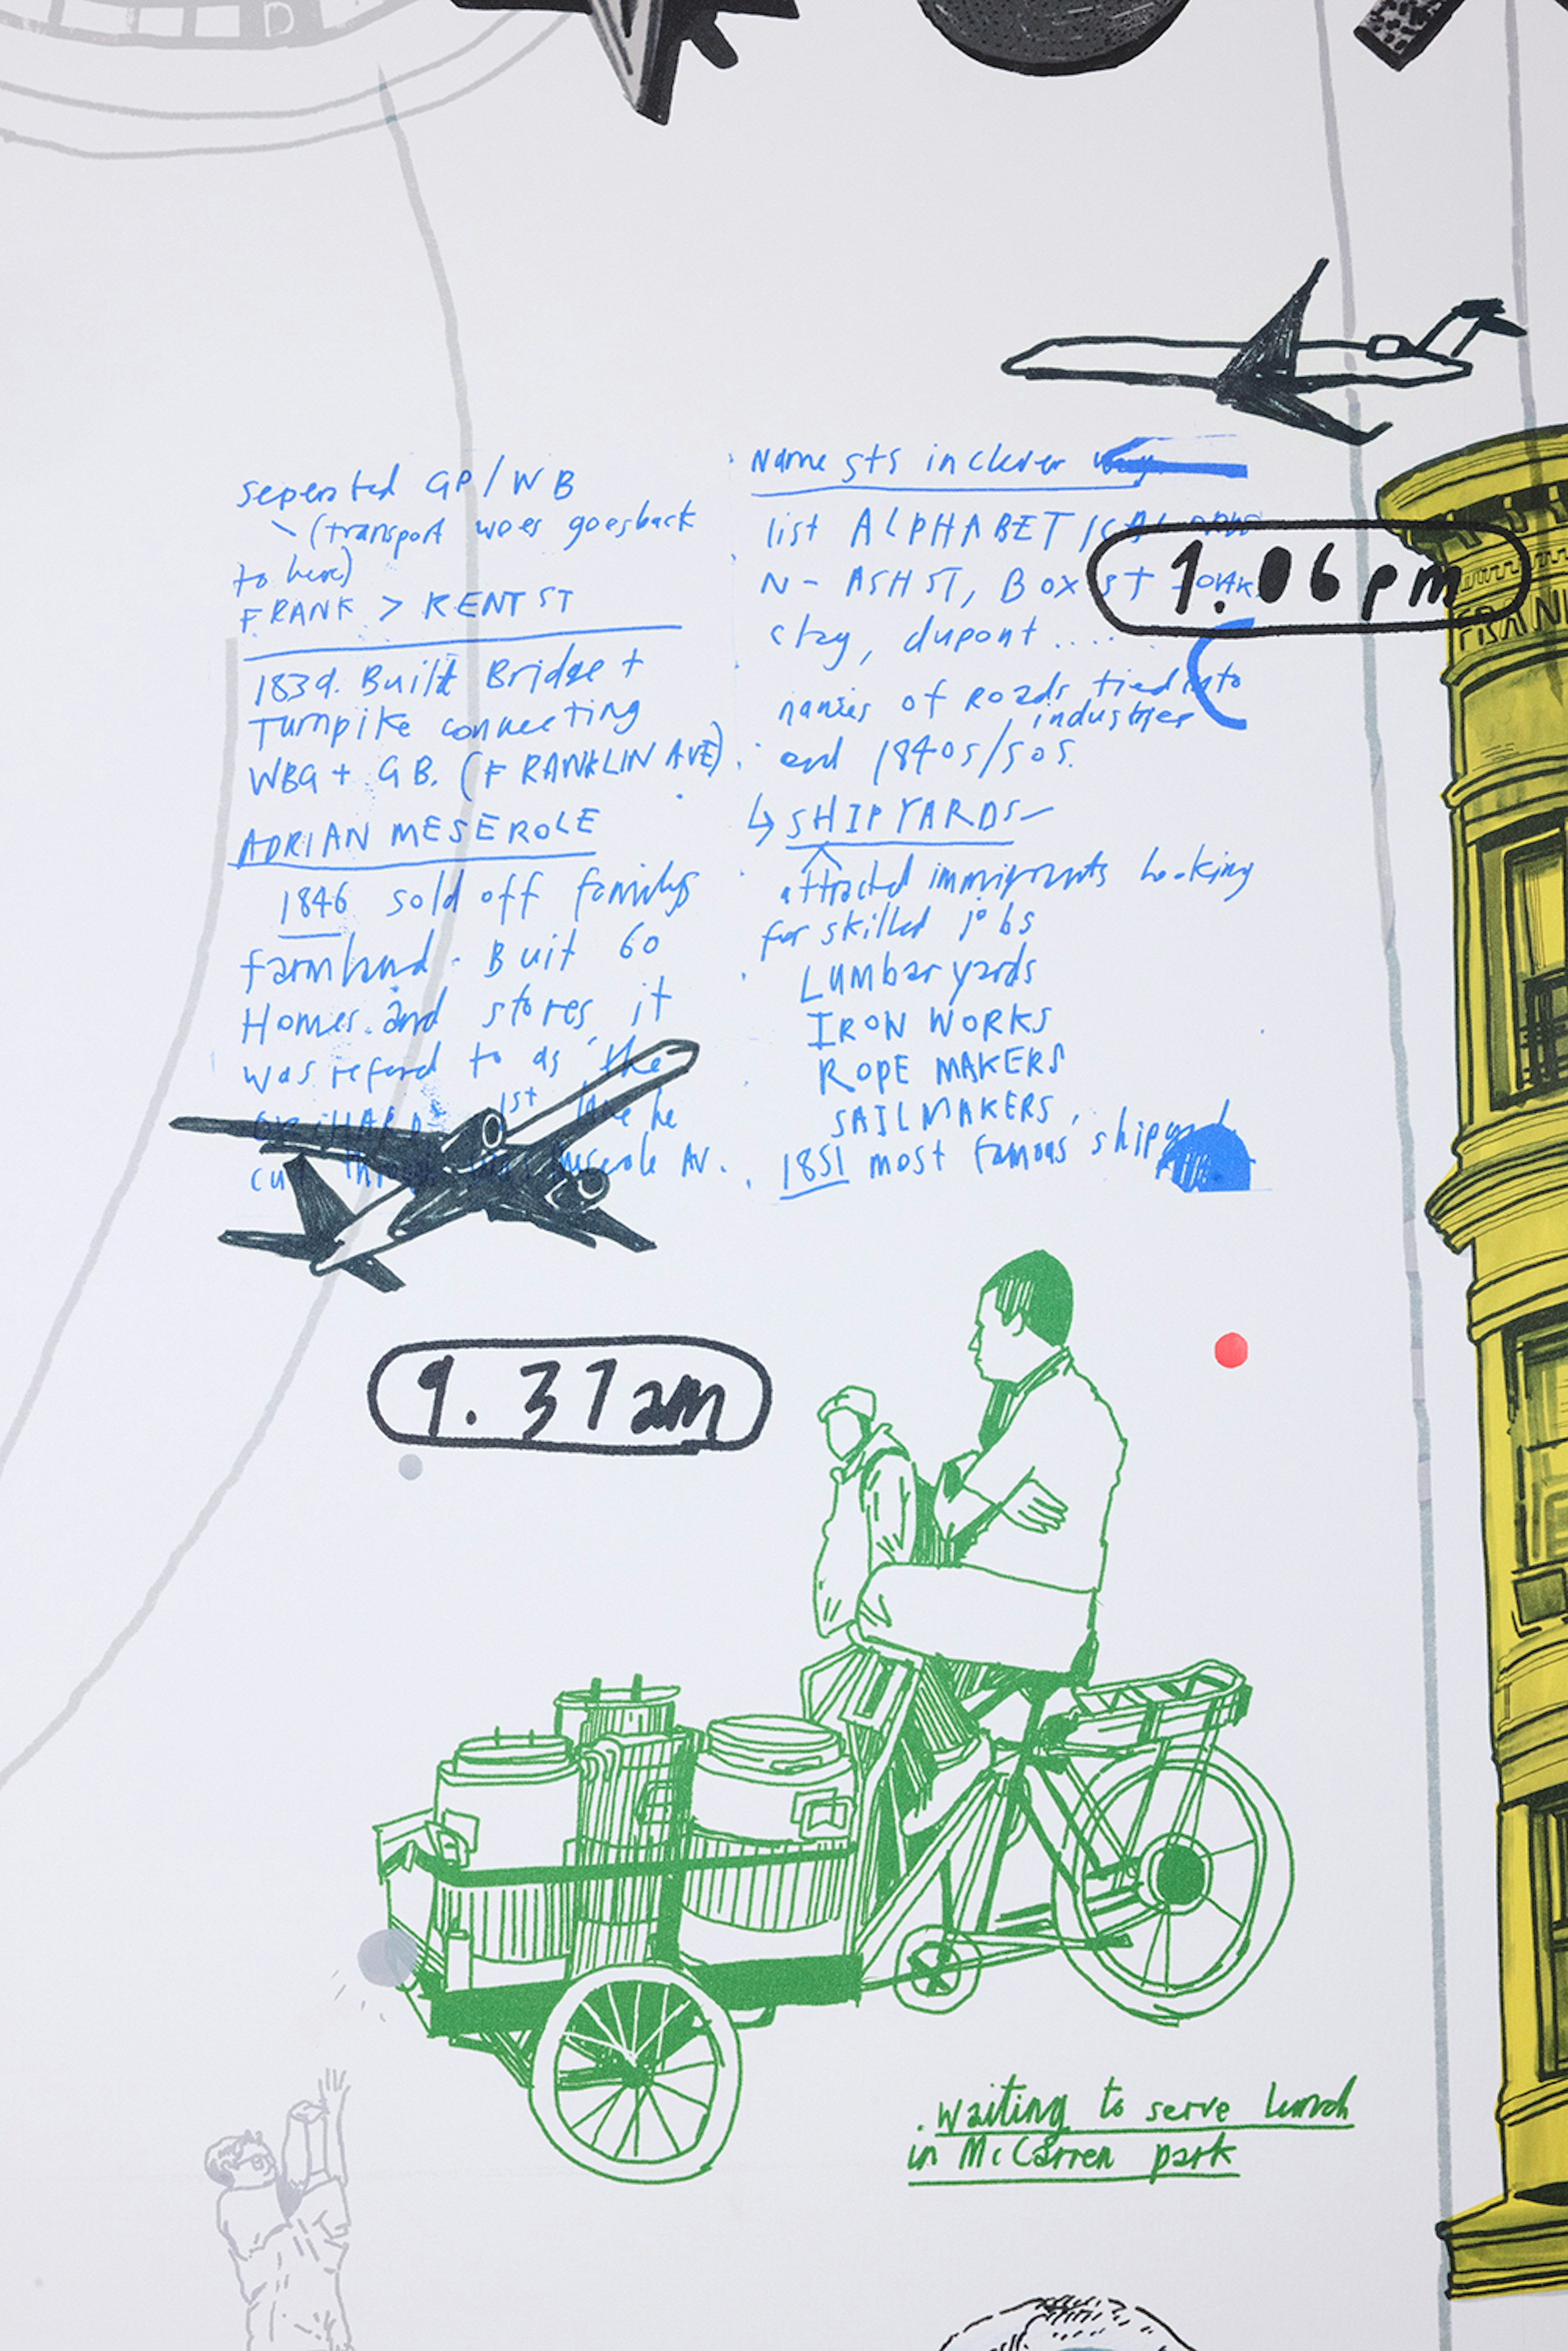 seperated GP/WB
(transport woes goes back
to here)
FRANK > KENT ST
1839. Built Bridge +
Turnpike connecting
WBG + GB. (FRANKLIN AVE)
ADRIAN MESEROLE
1846 sold off familys
farmland. Buit 60
Homes. and stores it
was referd to as 'the
ORCHARD 1st lane he
cut Meserole AV.
Name sts in clever
list ALPHABETICAL
N- ASH ST, BOX ST
clay, dupont ....
names of Roads tied into
industries
and 1840s/50s.
↳ SHIPYARDS-
attracted immigrants looking
for skilled jobs
Lumbar yards
IRON WORKS
ROPE MAKERS
SAILMAKERS,
1851 most famous shipyard
1.06pm
FRAN
9.37am
. waiting to serve lunch
in McCarren park